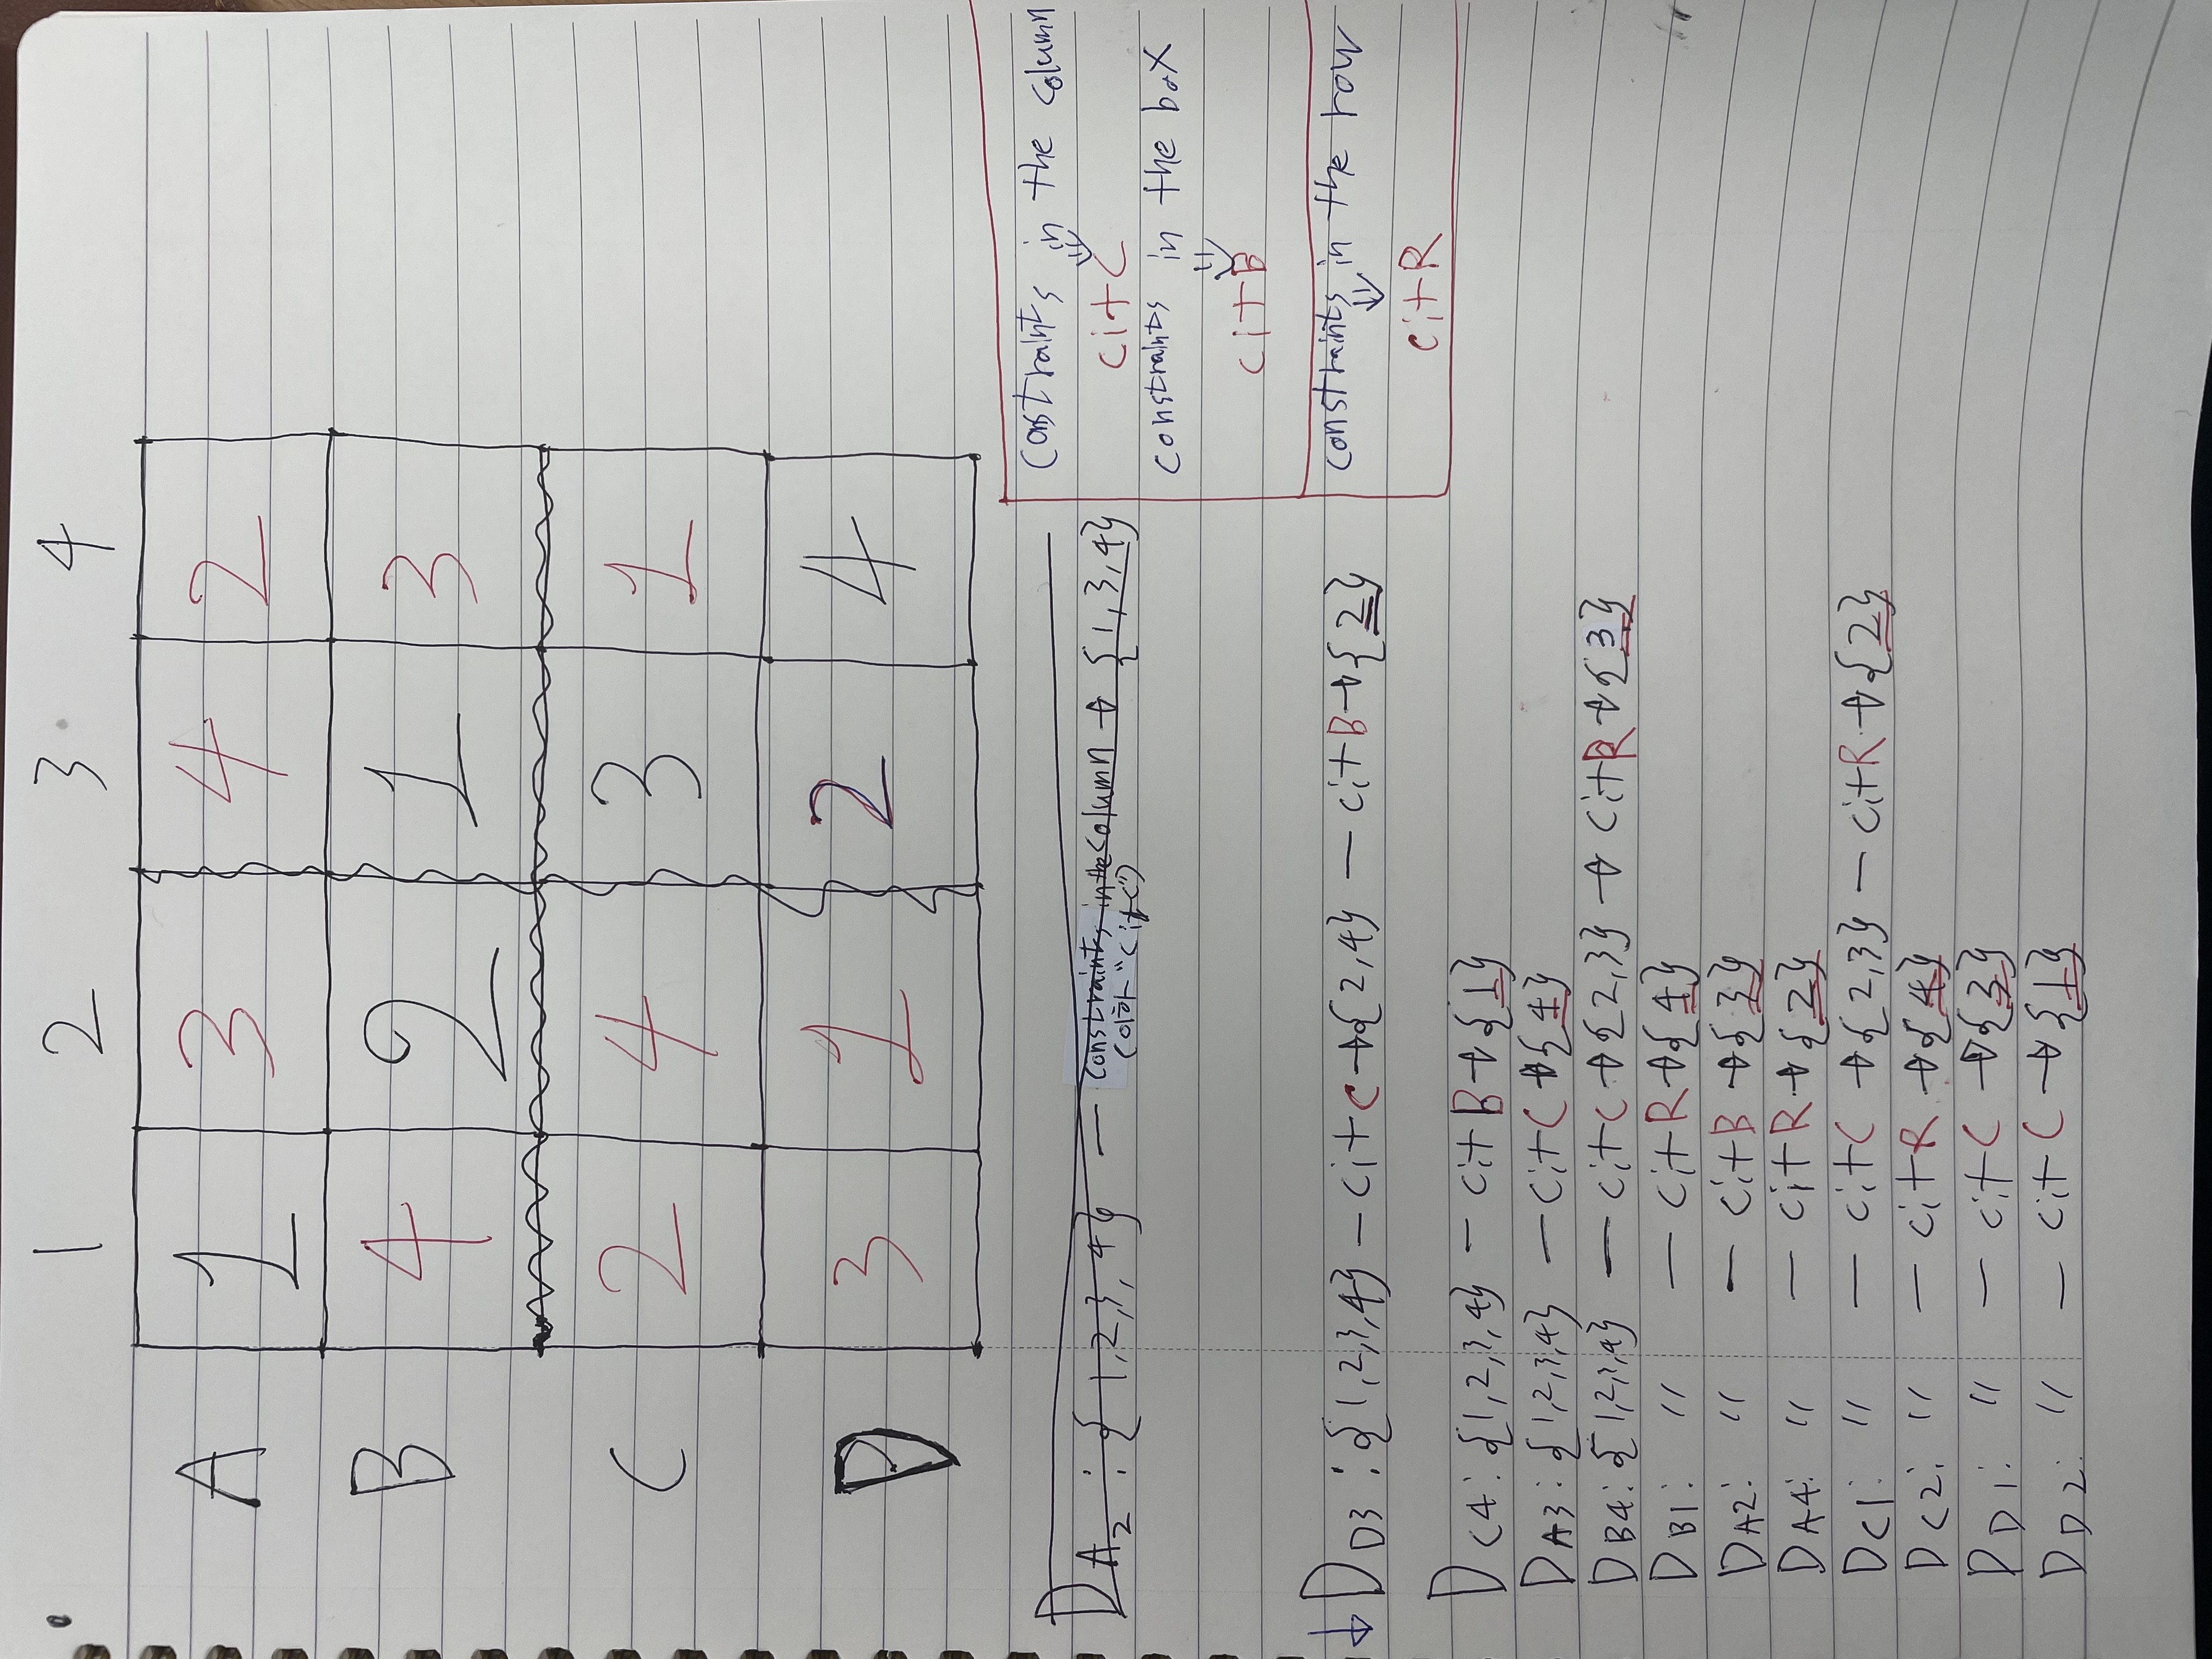 1 2 3 4
A 1 3 4 2
B 4 2 1 3
C 2 4 3 1
D 3 1 2 4
DA2 : {1,2,3,4} — constraints in the column → {1,3,4}
(이하 "citc")
constraints in the column
⇓
citC
constraints in the box
⇓
citB
constraints in the row
⇓
citR
↓ DD3 : {1,2,3,4} — citC → {2,4} — citB → {2}
DC4: {1,2,3,4} — citB → {1}
DA3: {1,2,3,4} — citC → {4}
DB4: {1,2,3,4} — citC → {2,3} → citR → {3}
DB1: " — citR → {4}
DA2: " — citB → {3}
DA4: " — citR → {2}
DC1: " — citC → {2,3} — citR → {2}
DC2: " — citR → {4}
DD1: " — citC → {3}
DD2: " — citC → {1}